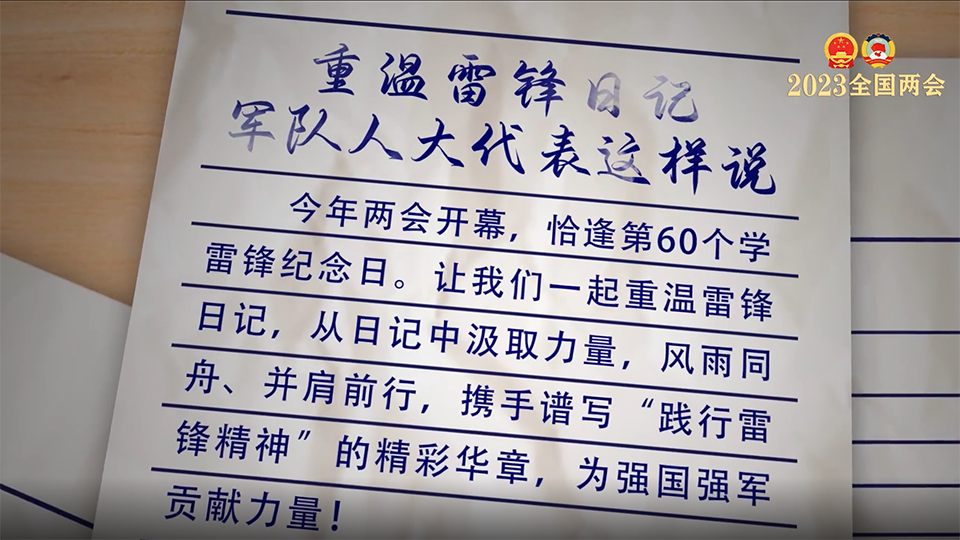 重温雷锋日记
军队人大代表这样说
2023全国两会
今年两会开幕，恰逢第60个学
雷锋纪念日。让我们一起重温雷锋
日记，从日记中汲取力量，风雨同
舟、并肩前行，携手谱写“践行雷
锋精神”的精彩华章，为强国强军
贡献力量！